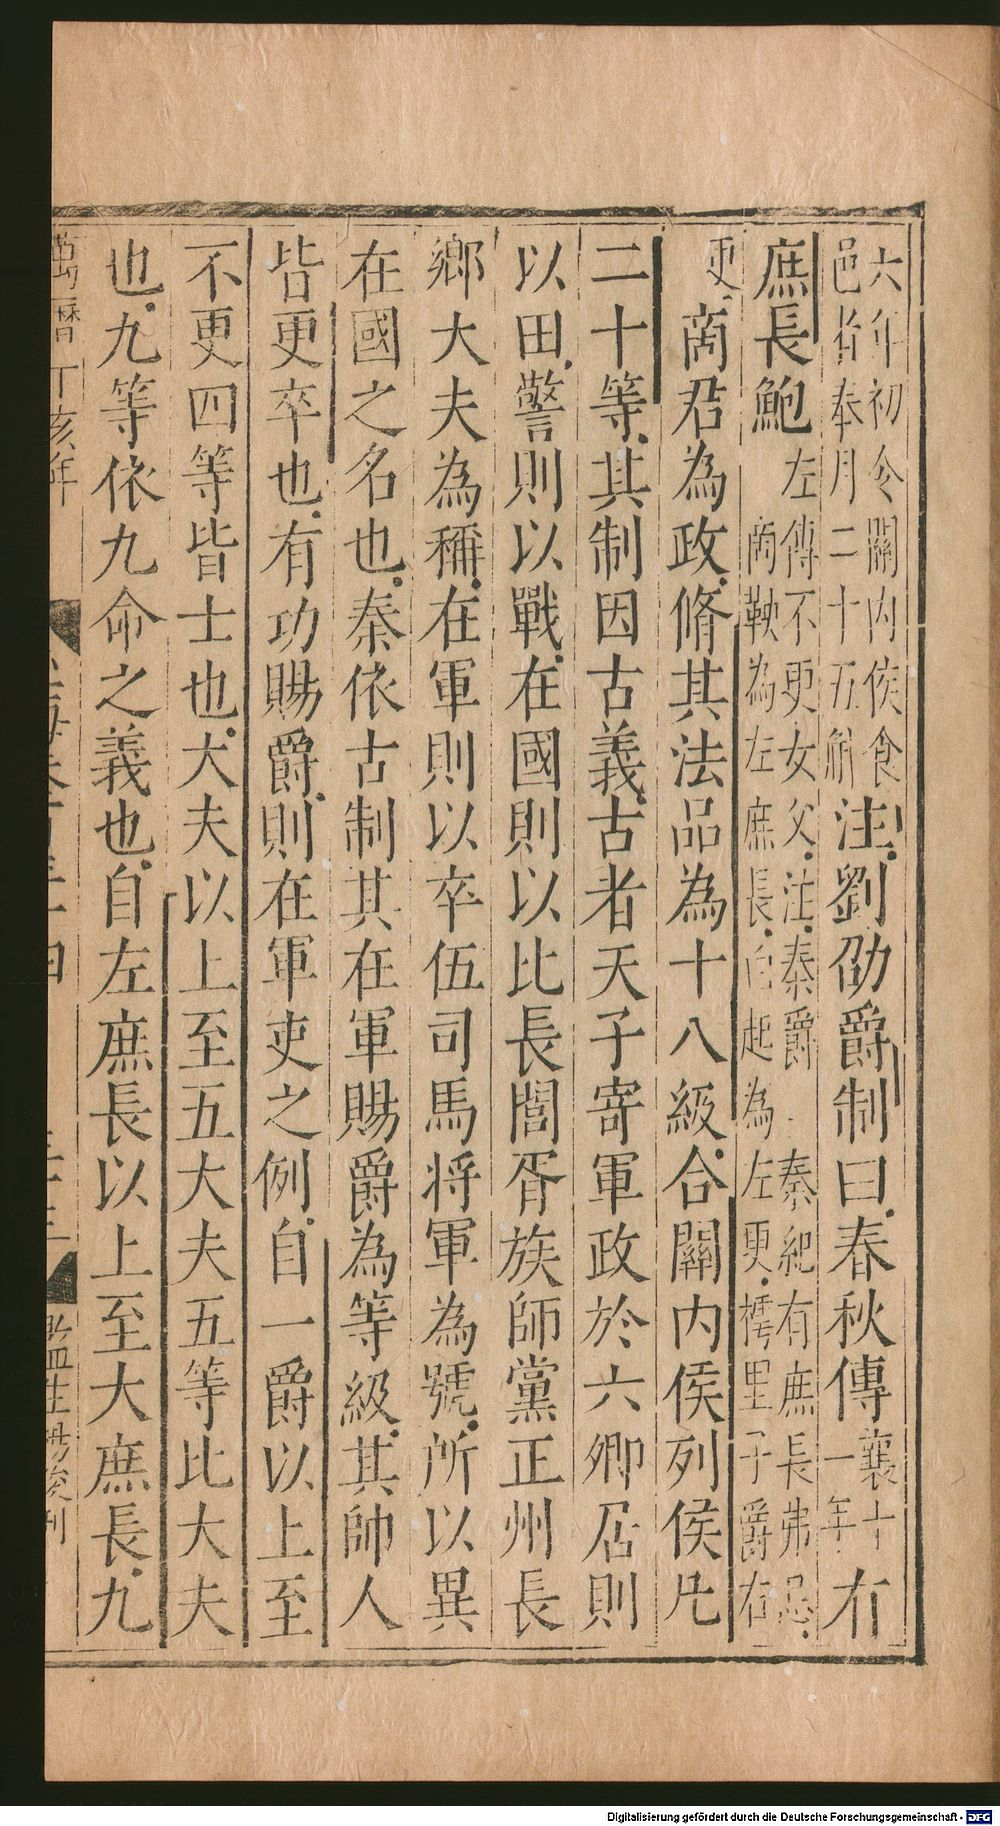 六年初令關内侯食
邑者奉月二十五斛
注劉劭爵制曰春秋傳
襄十
一年
有
庶長鮑
左傳不更女父注秦爵 秦紀有庶長弗忌
商鞅為左庶長白起為左更樗里子爵右
更
商君為政脩其法品為十八級合關内侯列侯凡
二十等其制因古義古者天子寄軍政於六卿居則
以田警則以戰在國則以比長閭胥族師黨正州長
鄉大夫為稱在軍則以卒伍司馬将軍為號所以異
在國之名也秦依古制其在軍賜爵為等級其帥人
皆更卒也有功賜爵則在軍吏之例自一爵以上至
不更四等皆士也大夫以上至五大夫五等比大夫
也九等依九命之義也自左庶長以上至大庶長九
萬曆丁亥年
監生楊俊刊
Digitalisierung gefördert durch die Deutsche Forschungsgemeinschaft - DFG